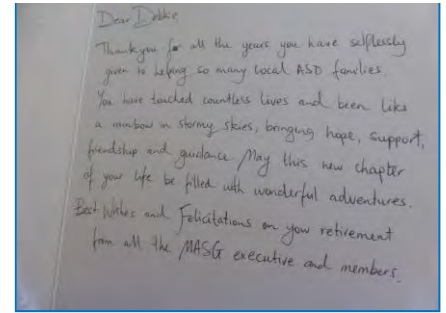 Dear Debbie
Thankyou for all the years you have selflessly
given to helping so many local ASD families.
You have touched countless lives and been like
a rainbow in stormy skies, bringing hope, support,
friendship and guidance. May this new chapter
of your life be filled with wonderful adventures.
Best Wishes and Felicitations on your retirement
from all the MASG executive and members.